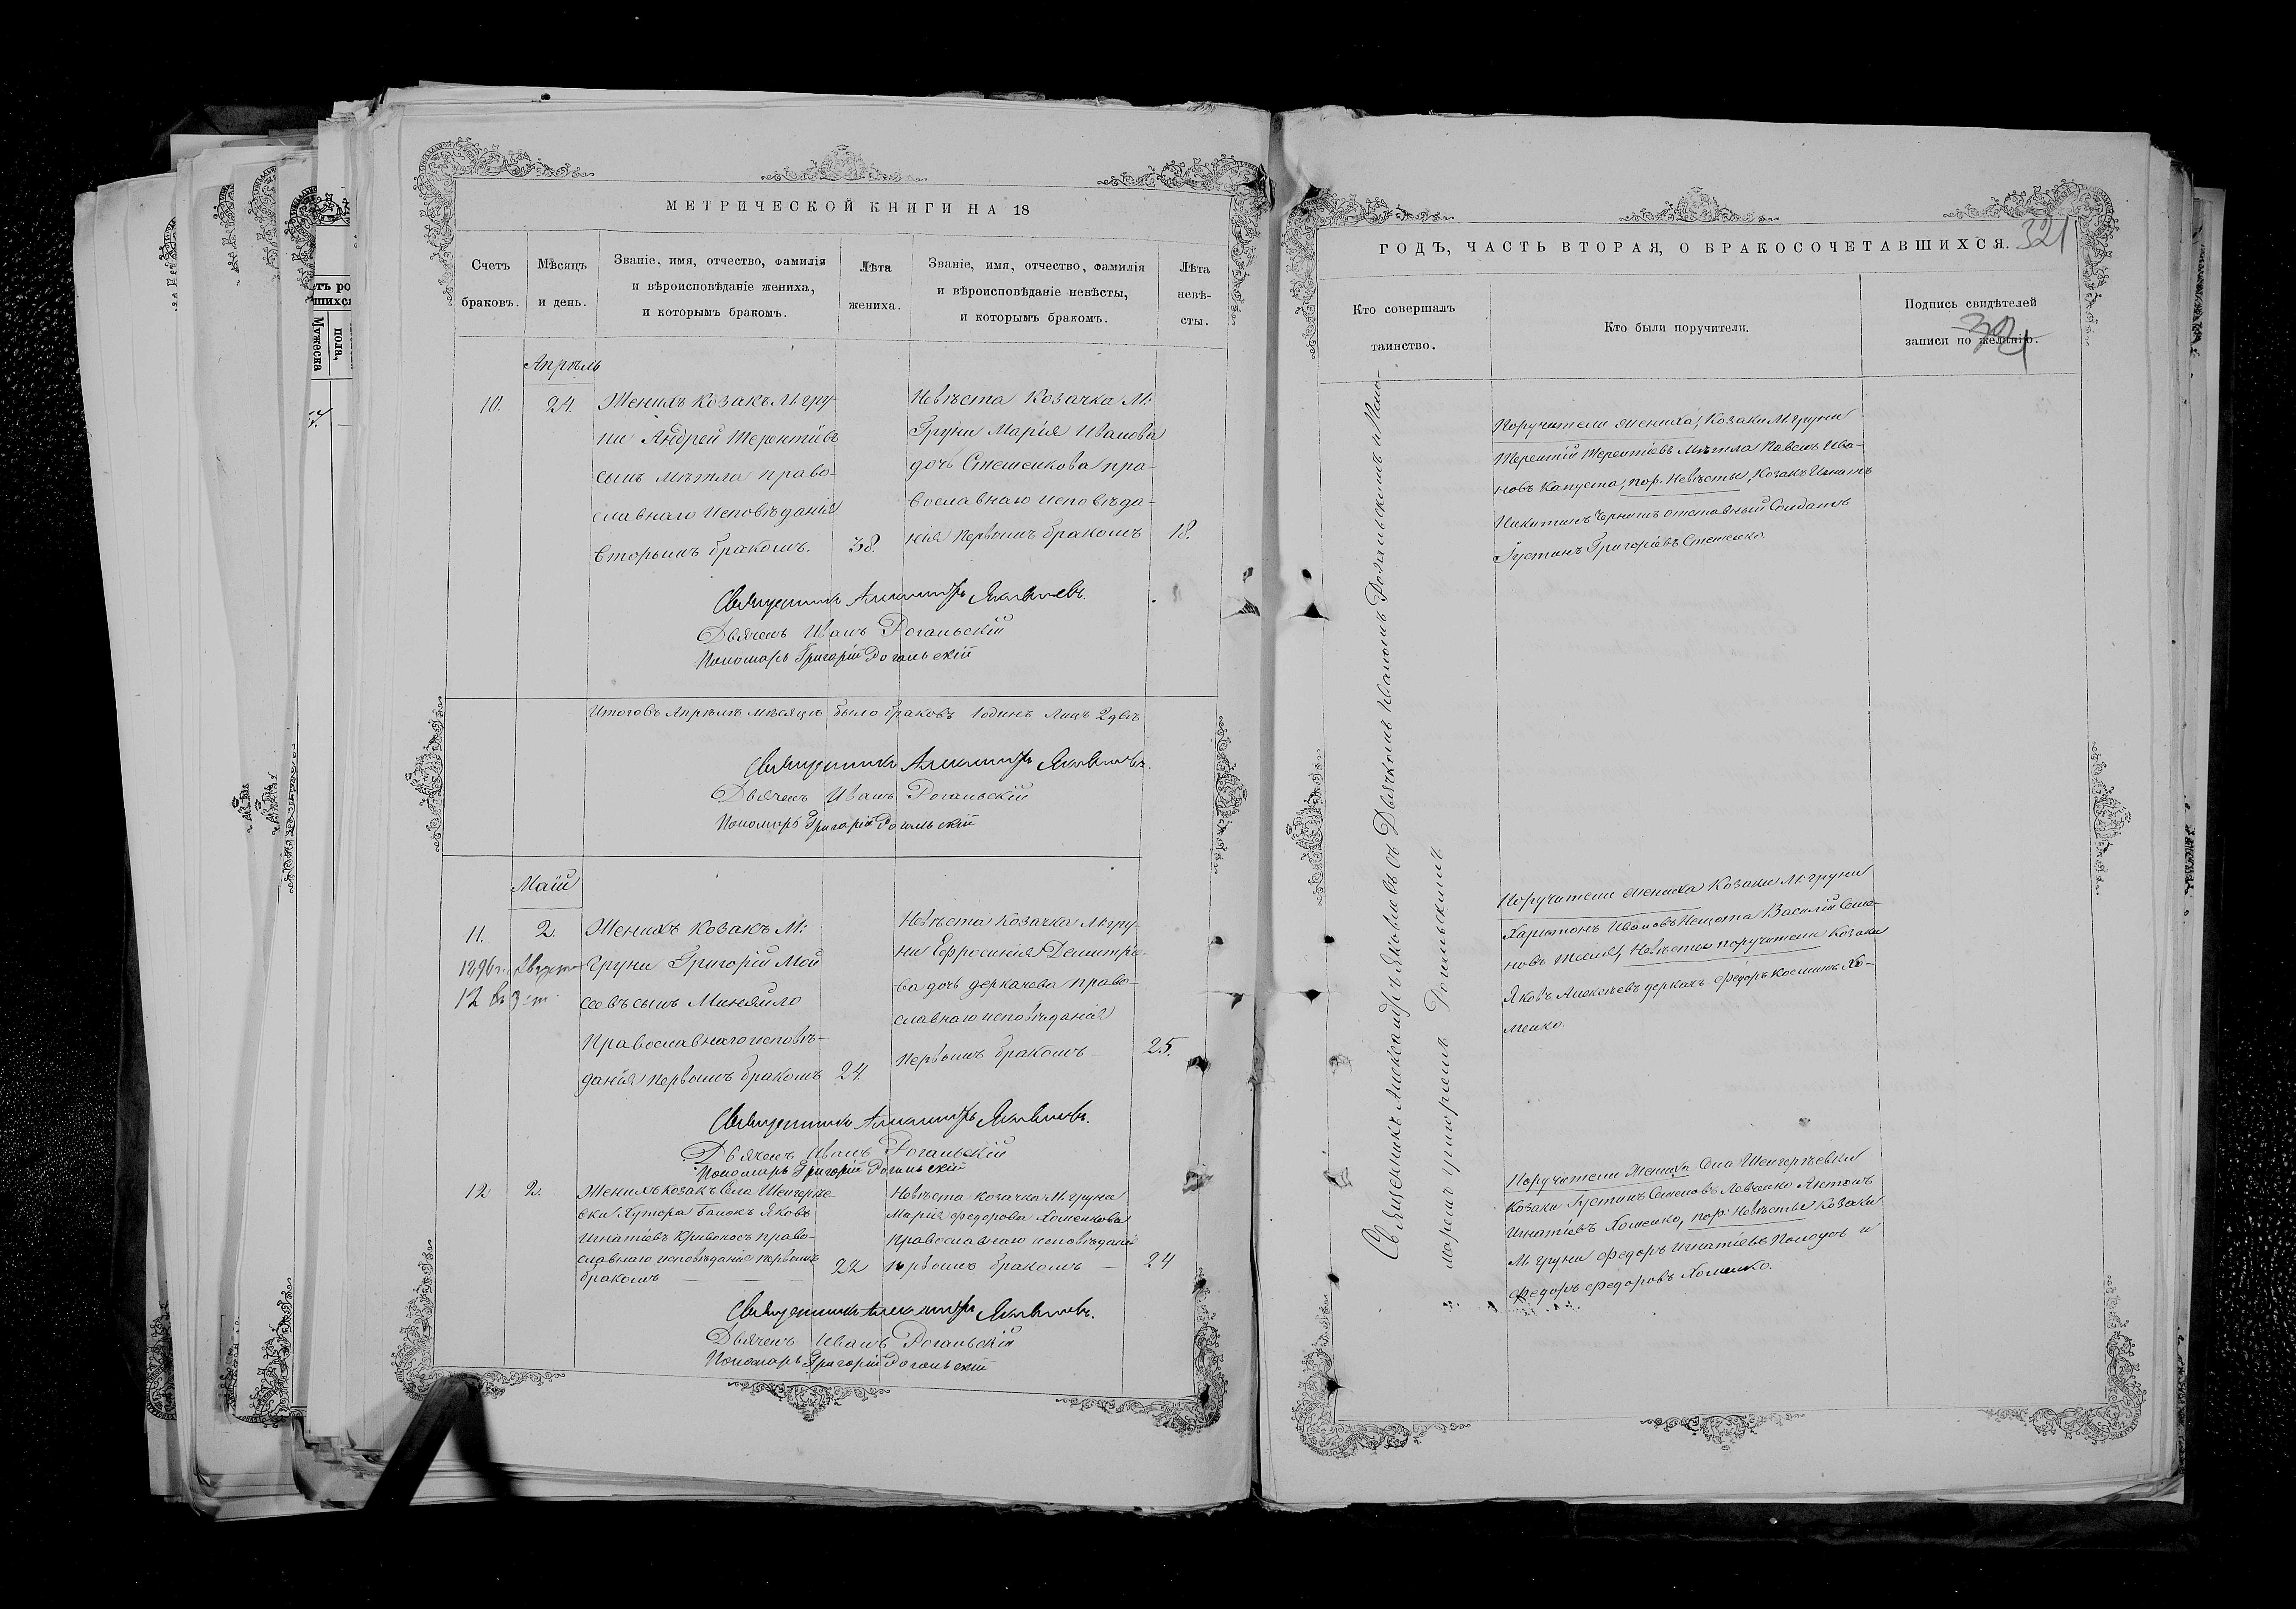 МЕТРИЧЕСКОЙ КНИГИ НА 18
Счетъ браковъ.
Мѣсяцъ и день.
Званіе, имя, отчество, фамилія и вѣроисповѣданіе жениха, и которымъ бракомъ.
Лѣта жениха.
Званіе, имя, отчество, фамилія и вѣроисповѣданіе невѣсты, и которымъ бракомъ.
Лѣта невѣ-
сты.
Апрѣль
10.
24.
Женихъ козакъ М. Гру-
ни Андрей Терентіевъ
сынъ Мѣтла право-
славнаго исповѣданія
вторымъ бракомъ.
38.
Невѣста козачка М:
Груни Марія Иванова
дочь Стеценкова пра-
вославнаго исповѣда-
нія первымъ бракомъ
18.
Священникъ Александръ Яковлевъ.
Дьячокъ Иванъ Рогальскій
Пономарь Григорій Рогальскій
Итого въ Апрѣлѣ мѣсяцѣ было браковъ 1 одинъ лицъ 2 двѣ
Священникъ Александръ Яковлевъ.
Дьячокъ Иванъ Рогальскій
Пономарь Григорій Рогальскій
Май
11.
2.
1896 г. Августа
12
Женихъ козакъ М:
Груни Григорій Мой
сеевъ сынъ Миняйло
Православнаго исповѣ-
данія первымъ бракомъ
24.
Невѣста козачка М. Гру-
ни Ефросинія Димитріе-
ва дочь Деркачева право-
славнаго исповѣданія
первымъ бракомъ
25.
Священникъ Александръ Яковлевъ.
Дьячокъ Иванъ Рогальскій
Пономарь Григорій Рогальскій
12
2.
Женихъ козакъ Села
вки Хутора Яковъ
Игнатіевъ Кривокосъ право-
славнаго исповѣданія первымъ
бракомъ
22
Невѣста козачка М. Груни
Марія Федорова Хоменкова
Православнаго исповѣданія
первымъ бракомъ
24
Священникъ Александръ Яковлевъ.
Дьячокъ Иванъ Рогальскій
Пономарь Григорій Рогальскій
ГОДЪ, ЧАСТЬ ВТОРАЯ, О БРАКОСОЧЕТАВШИХСЯ.
321
Кто совершалъ таинство.
Кто были поручители.
Подпись свидѣтелей записи по желанію.
321
Священникъ Александръ Яковлевъ съ Дьячкомъ Иваномъ Рогальскимъ и Поно-
маремъ Григоріемъ Рогальскимъ
Поручители жениха, козаки М. Груни
Терентій Терентіевъ Мѣтла Павелъ Ива-
новъ Капуста, пор. невѣсты, козакъ Игнатъ
Никитинъ отставный Солдатъ
Густинъ Григоріевъ Стеценко.
Поручители жениха козаки М. Груни
Харитонъ Ивановъ Василій Семе-
новъ невѣсты поручители козаки
Яковъ Алексѣевъ Деркачъ Федоръ Косминъ Хо-
менко.
Поручители жениха Села
козаки Густинъ Семеновъ Левченко Антонъ
Игнатіевъ Хоменко, пор. невѣсты козаки
М. Груни Федоръ Игнатіевъ и
Федоръ Федоровъ Хоменко.